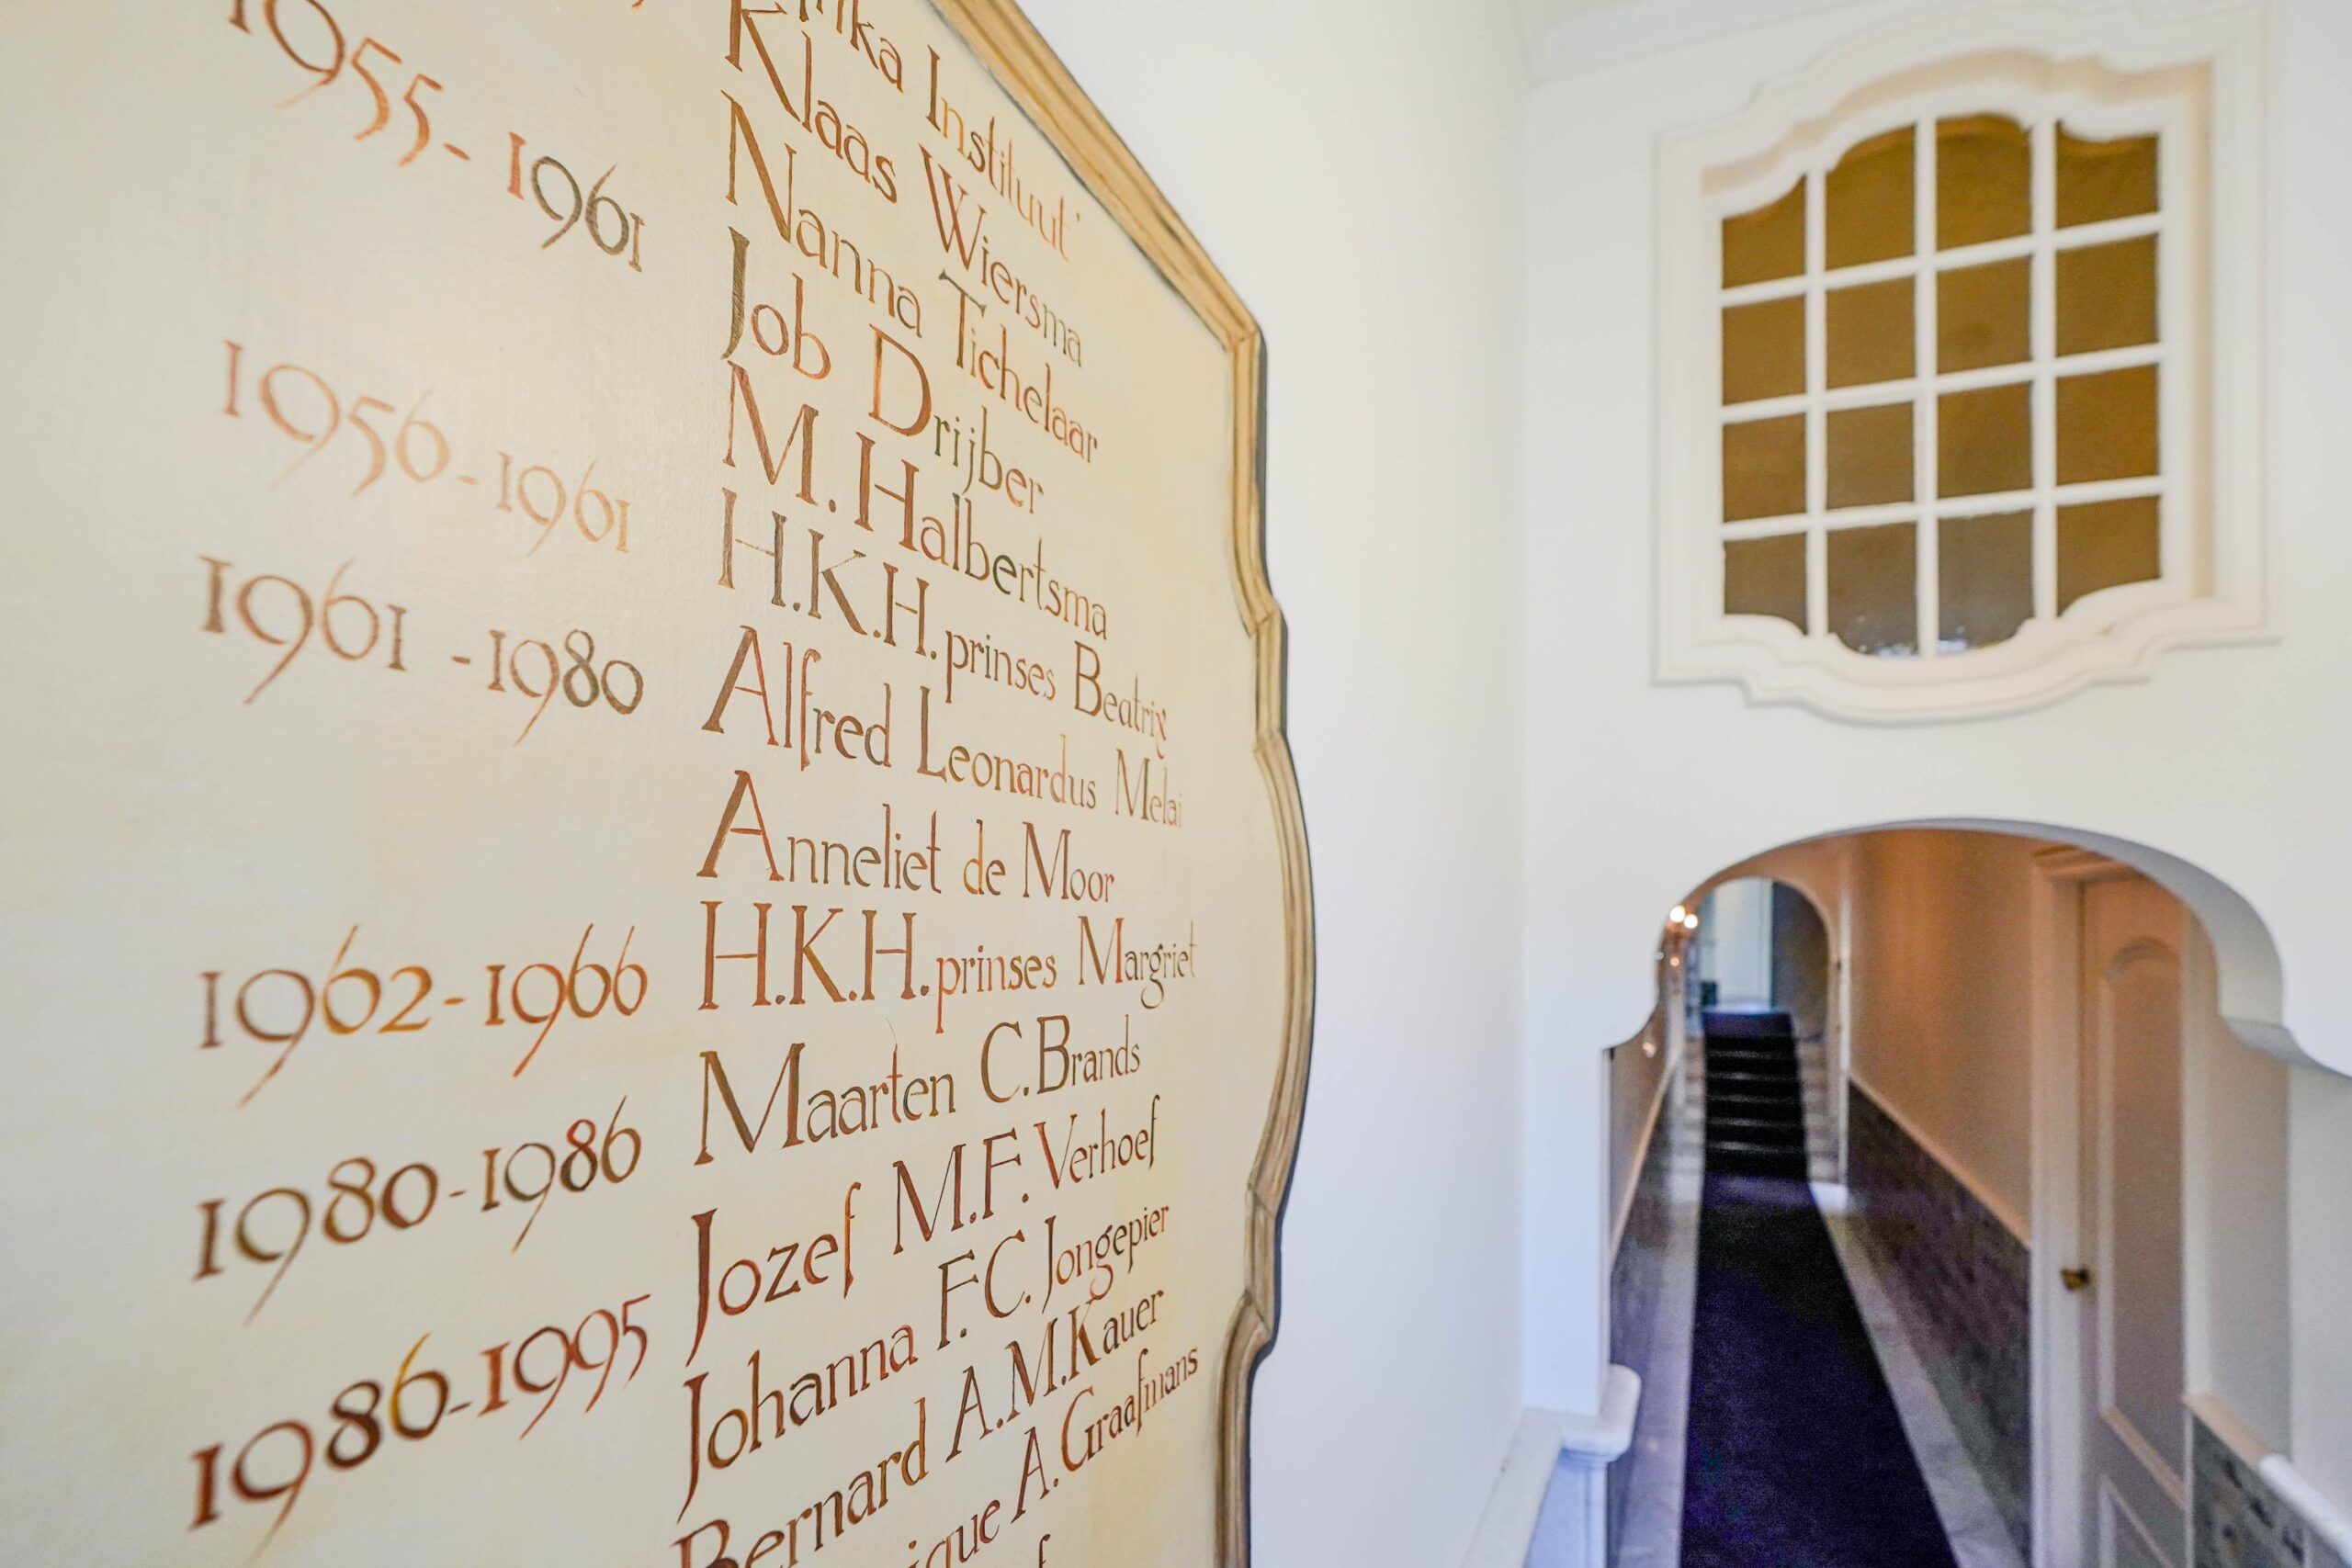 Instituut'
Klaas Wiersma
Nanna Tichelaar
1955-1961 Job Drijber
M. Halbertsma
1956-1961 H.K.H. prinses Beatrix
1961-1980 Alfred Leonardus Melai
Anneliet de Moor
1962-1966 H.K.H. prinses Margriet
1980-1986 Maarten C. Brands
1986-1995 Jozef M.F. Verhoef
Johanna F.C. Jongepier
Bernard A.M. Kauer
A. Graafmans